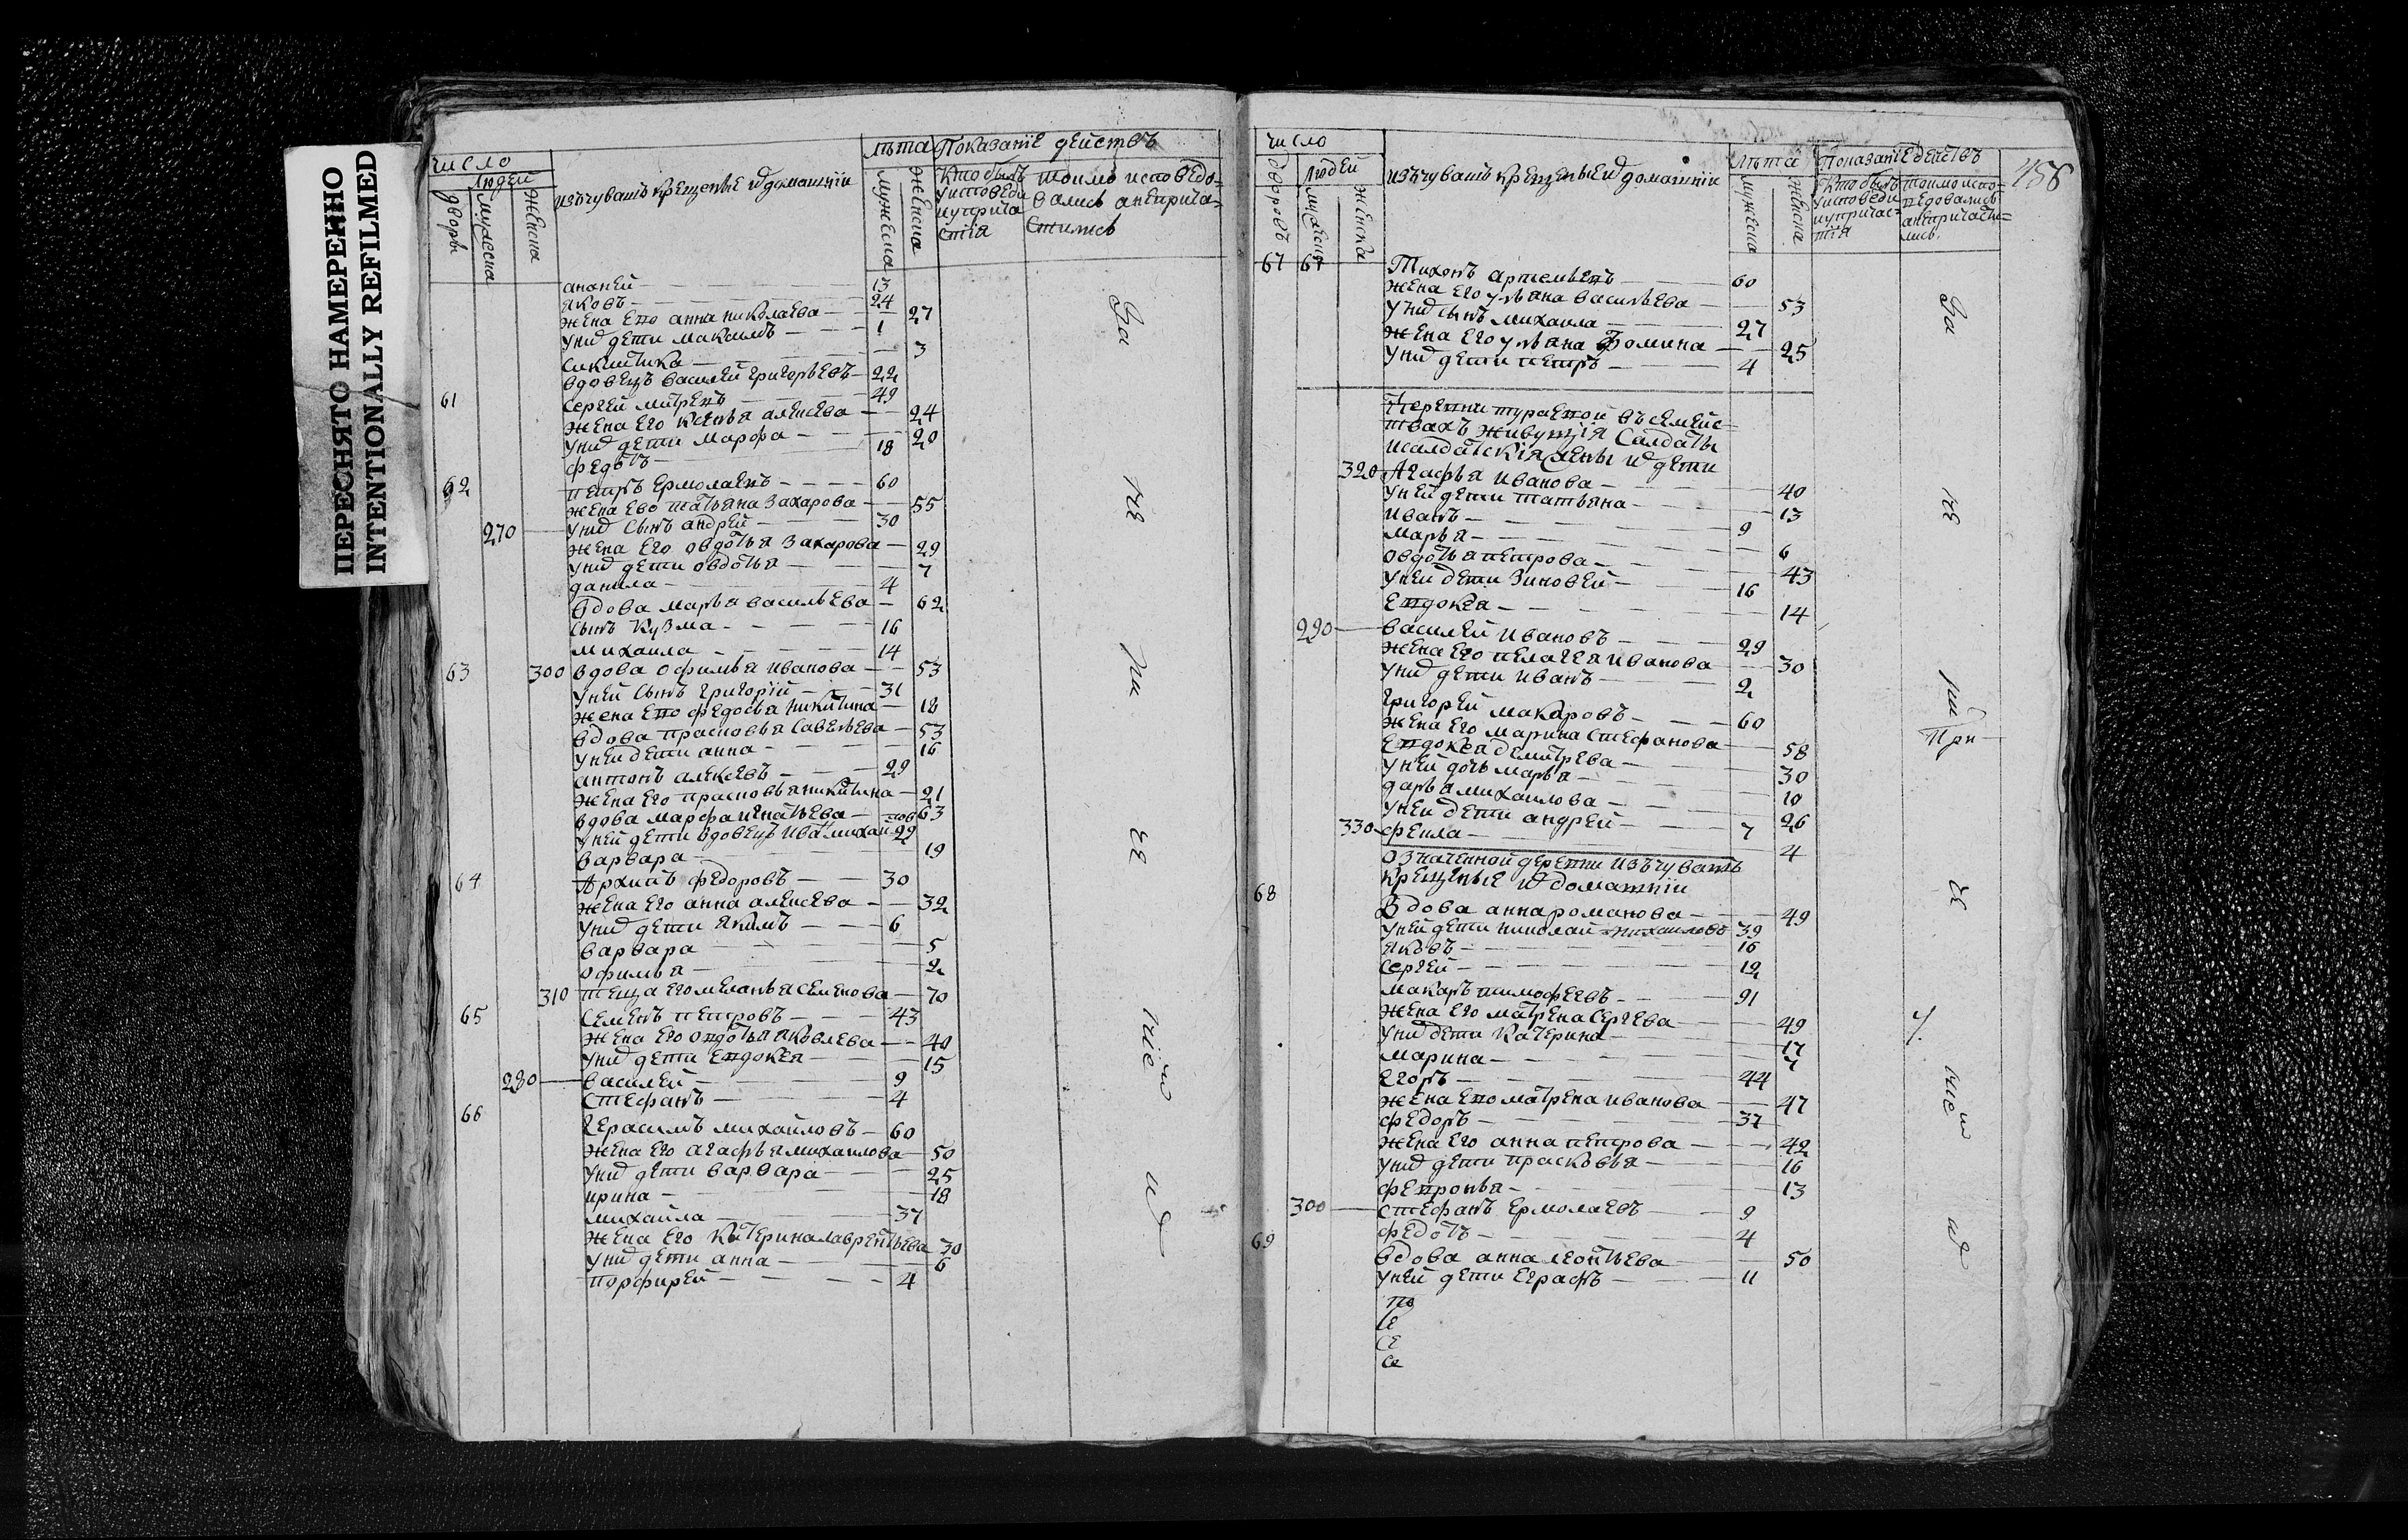 ПЕРЕСНЯТО НАМЕРЕННО
INTENTIONALLY REFILMED
число
людей
дворы
мужеска
женска
изъчувашъ крещеные и домашнiи
лѣта
мужеска
женска
Показанiе действъ
Кто былъ
уисповеди
иуприча
стiя
токмо исповедо-
вались анеприча-
стились
ананей 13
яковъ 24
жена ево анна николаева 27
уних дети максимъ 1
3
вдовецъ василей григорьевъ 22
61 Сергей 49
жена его ксенья алексева 24
уних дети марфа 20
федотъ 18
62 петръ ермолаевъ 60
жена ево татьяна захарова 55
270 уних сынъ андрей 30
жена его овдотья захарова 29
уних дети овдотья 7
данила 4
вдова марья васильева 62
сынъ кузма 16
михаила 14
63 300 вдова офимья иванова 53
уней сынъ григорiй 31
жена ево федосья никитина 18
вдова прасковья савельева 53
уней дети анна 16
антонъ алексевъ 29
жена его прасковья никитина 21
вдова марфа игнатьева 63
уней дети вдовецъ иванъ михаиловъ 29
варвара 19
64 Архипъ федоровъ 30
жена его анна алексева 32
уних дети якимъ 6
варвара 5
офимья 2
310 теща его меланья семенова 70
65 Семенъ петровъ 43
жена его овдотья яковлева 40
уних дети евдокея 15
280 василей 9
стефанъ 4
66 герасимъ михайловъ 60
жена его агафья михаилова 50
уних дети варвара 25
ирина 18
михайла 37
жена его катерина лаврентьева 30
уних дети анна 6
порфирей 4
число
дворовъ
людей
мужеска
женска
изъчувашъ крещеные и домашнiи
лѣта
мужеска
женска
Показанiе действъ
Кто былъ
уисповеди
иупричас-
тiя
токмо испо-
ведовались
анепричасти-
лись.
458
67 67 Тихонъ артемьевъ 60
жена его ульяна васильева 53
уних сынъ михаила 27
жена его ульяна фомина 25
уних дети петръ 4
въ семейс-
твахъ живущiя Салдаты
исалдатскiя жены и дети
320 Агафья иванова 40
уней дети татьяна 13
иванъ 9
марья 6
овдотья петрова 43
уней дети зиновей 16
евдокея 14
290 василей ивановъ 29
жена его пелагея иванова 30
уних дети иванъ 2
григорей макаровъ 60
жена его марина стефанова 58
евдокея демитрева 30
уней дочь марья 10
дарья михаилова 26
уней дети андрей 7
330 фекла 4
означенной деревни изъчувашъ
крещеные и домашнiи
68 Вдова анна романова 49
уней дети николаи михаиловъ 39
яковъ 16
сергей 12
макаръ тимофеевъ 91
жена его матрена сергева 49
уних дети катерина 17
марина 7
егоръ 44
жена ево матрена иванова 47
федоръ 37
жена его анна петрова 42
уних дети прасковья 16
февронья 13
300 стефанъ ермолаевъ 9
федотъ 4
69 вдова анна леонтьева 50
уней дети еграфъ 11
по
се
се
се